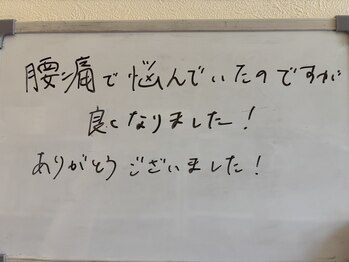 腰痛で悩んでいたのですが
良くなりました！
ありがとうございました！